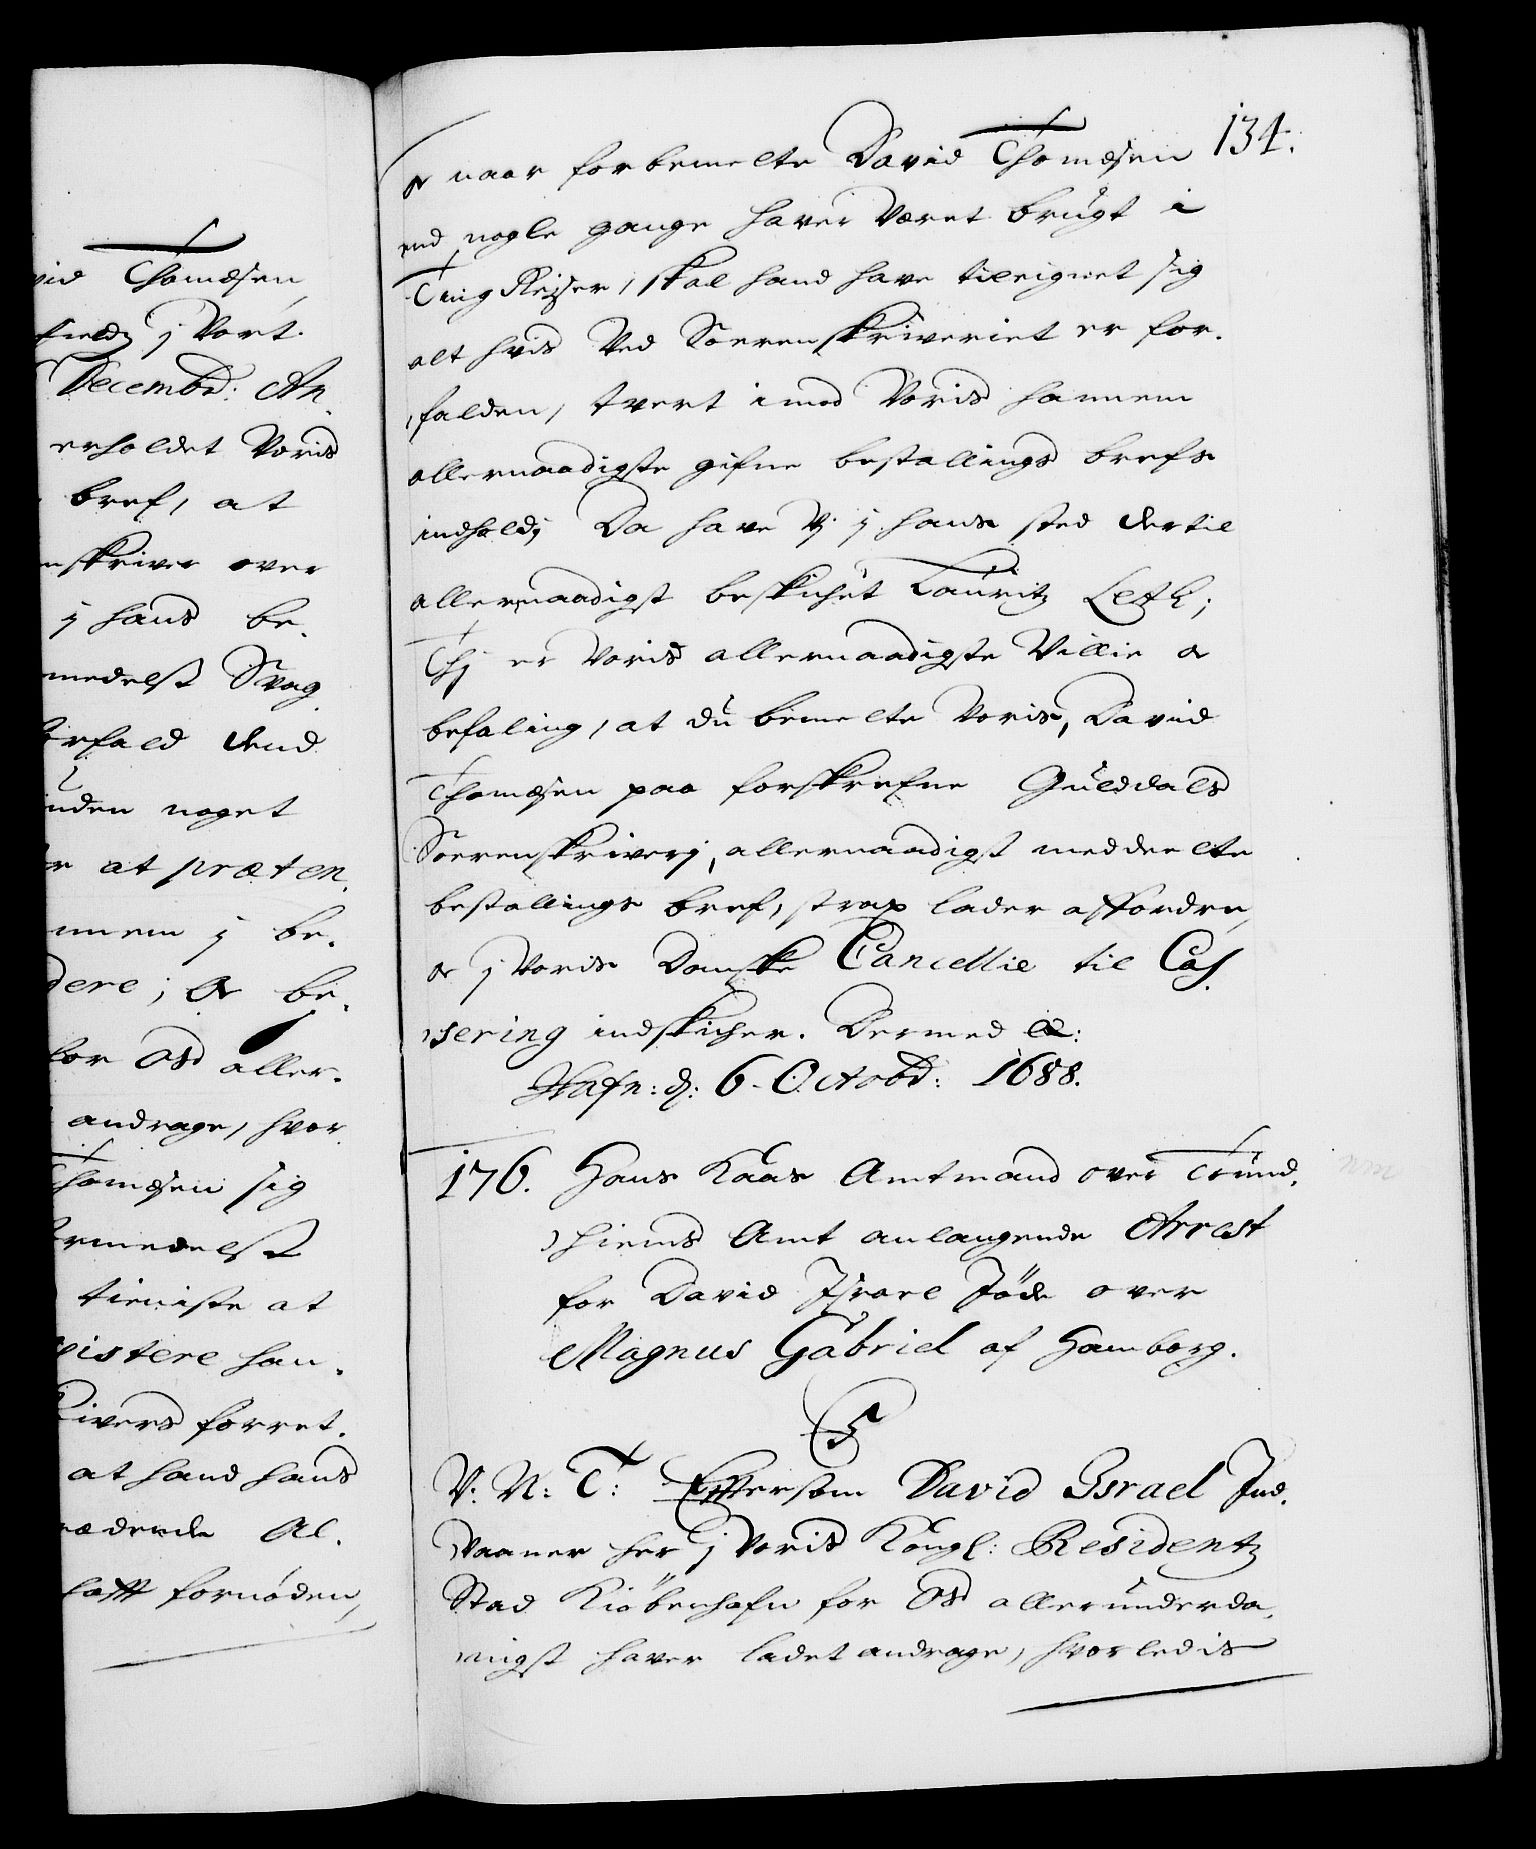 vid Thomæsen
field j Vort
Decembr: An
erholdet Voris
bref, at
nskriver over
j hans be-
medelst Svag
rfald dend
uden noget
r at præten-
nnem j be-
dere; oc be-
for Os aller-
andrage, hvor
Thomæsen sig
rmedelst
tieniste at
vistere han-
krivers forret-
at hand hans
rædende al-
hafft fornøden,
134.
oc naar forbemelte David Thomæsen
end nogle gange haver været brugt i
Ting Reyser, skal hand have tilegnet sig
alt hvis ved Sorenskriveriet er for-
falden, tvert imod Voris hannem
allernaadigste gifne bestallings brefs
indhold; Da have Vj j hans sted dertil
allernaadigst beskichet Lauritz Leth;
Thj er Voris allernaadigste Villie oc
befaling, at du bemelte Voris, David
Thomæsen paa forskrefne Gulddals
Sorenskriverj, allernaadigst meddeelte
bestallings bref, strax lader affordre,
oc j Voris Danske Cancellie til Cas-
sering indskicher. Dermed etc:
Hafn: d: 6. Octobr: 1688.
176. Hans Kaas Amtmand over Trund-
hiems Amt anlangende Arrest
for David Israel Jøde over
Magnus Gabriel af Hamborg.
C5
V: N: T: Eftersom David Israel Jud-
Vaaner her j Voris Kongl: Residentz
Stad Kiöbenhafn for Os allerunderda-
nigst haver ladet andrage, hvorledis